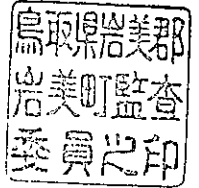 鳥取県岩美郡
岩美町監査
委員之印